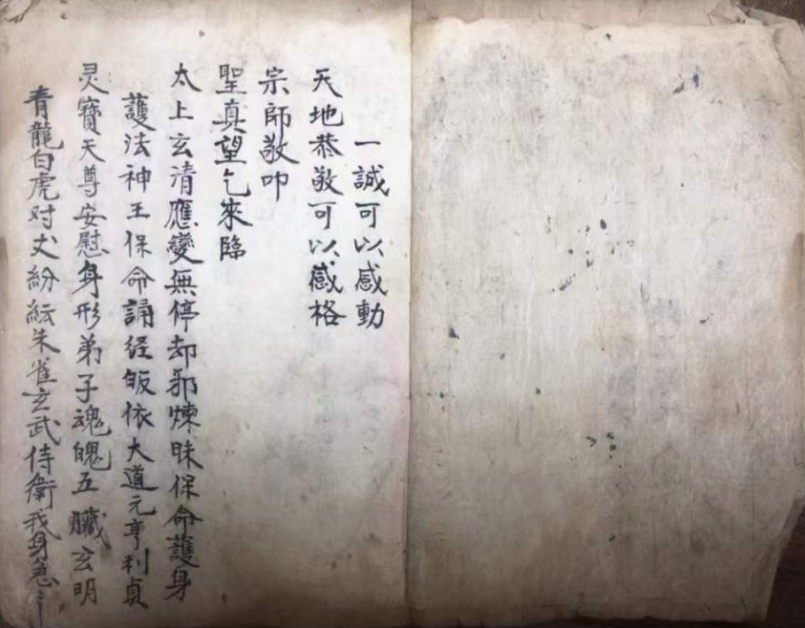 一誠可以感動
天地恭敬可以感格
宗師敬叩
聖真望乞來臨
太上玄清應變無停却邪煉昧保命護身
護法神王保命誦经皈依大道元亨利貞
灵寶天尊安慰身形弟子魂魄五臟玄明
青龍白虎对丈紛紜朱雀玄武侍衛我身急〻